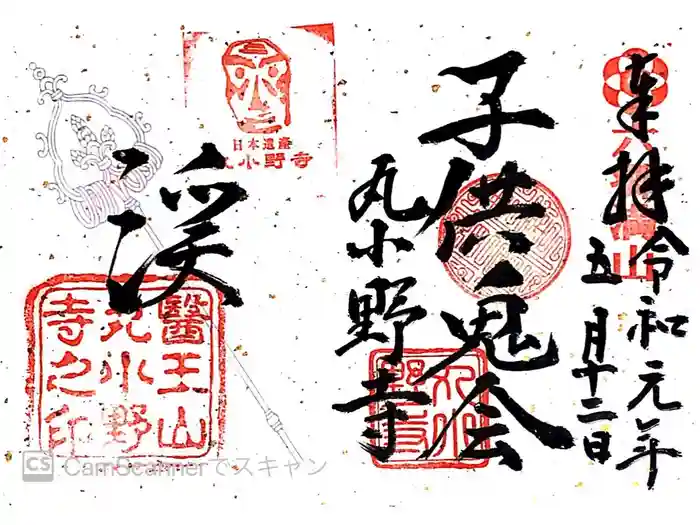 奉拝
令和元年
五月十二日
六郷山
子供鬼会
丸小野寺
丸小
野寺
日本遺産
丸小野寺
渓
醫王山
丸小野
寺之印
CS CamScannerでスキャン